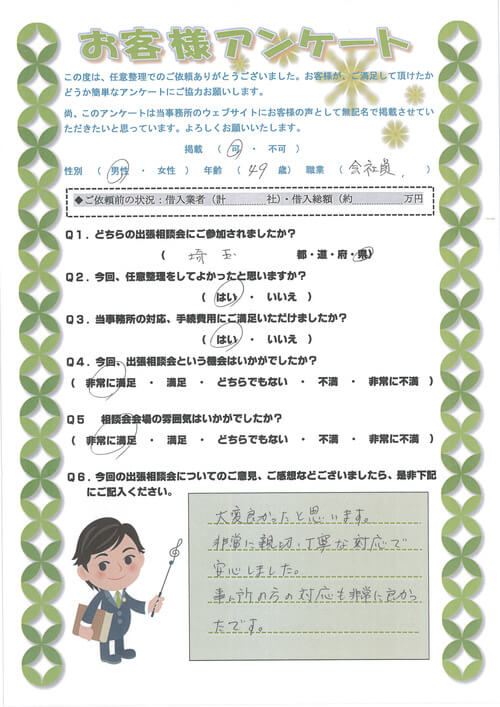 お客様アンケート
この度は、任意整理でのご依頼ありがとうございました。お客様が、ご満足して頂けたか
どうか簡単なアンケートにご協力お願いします。
尚、このアンケートは当事務所のウェブサイトにお客様の声として無記名で掲載させてい
ただきたいと思っています。よろしくお願いいたします。
掲載 （ 可 ・ 不可 ）
性別 （ 男性 ・ 女性 ） 年齢 （ 49 歳） 職業 （ 会社員 ）
◆ご依頼前の状況：借入業者（計　　　社）・借入総額（約　　　　万円
Q１．どちらの出張相談会にご参加されましたか？
（ 埼玉 都・道・府・県）
Q２．今回、任意整理をしてよかったと思いますか？
（ はい ・ いいえ ）
Q３．当事務所の対応、手続費用にご満足いただけましたか？
（ はい ・ いいえ ）
Q４．今回、出張相談会という機会はいかがでしたか？
（ 非常に満足 ・ 満足 ・ どちらでもない ・ 不満 ・ 非常に不満 ）
Q５ 相談会会場の雰囲気はいかがでしたか？
（ 非常に満足 ・ 満足 ・ どちらでもない ・ 不満 ・ 非常に不満 ）
Q６．今回の出張相談会についてのご意見、ご感想などございましたら、是非下記
にご記入ください。
大変良かったと思います。
非常に親切、丁寧な対応で
安心しました。
事ム所の方の対応も非常に良かっ
たです。